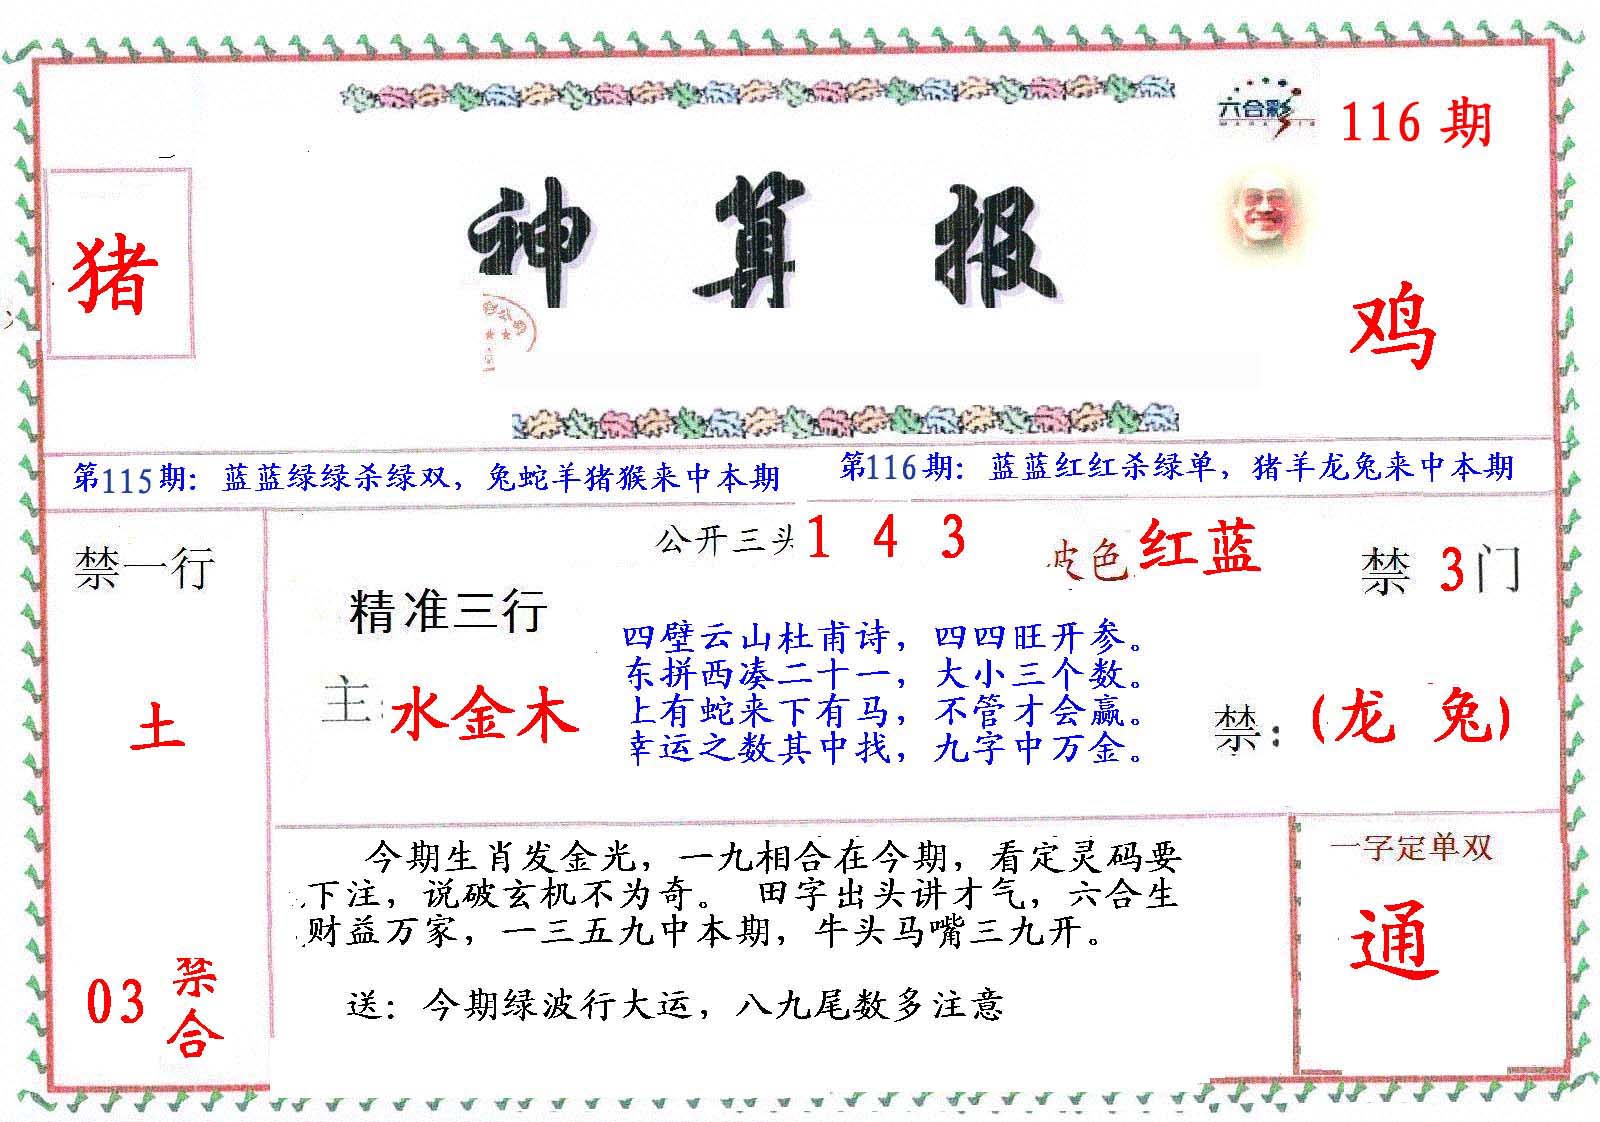 六合彩
116 期
神 算 报
猪
鸡
第115期：蓝蓝绿绿杀绿双，兔蛇羊猪猴来中本期
第116期：蓝蓝红红杀绿单，猪羊龙兔来中本期
禁一行
土
03 禁合
公开三头 1 4 3
波色 红蓝
禁 3 门
精准三行
主：水金木
四壁云山杜甫诗，四四旺开参。
东拼西凑二十一，大小三个数。
上有蛇来下有马，不管才会赢。
幸运之数其中找，九字中万金。
禁：(龙 兔)
今期生肖发金光，一九相合在今期，看定灵码要
下注，说破玄机不为奇。 田字出头讲才气，六合生
财益万家，一三五九中本期，牛头马嘴三九开。
送：今期绿波行大运，八九尾数多注意
一字定单双
通